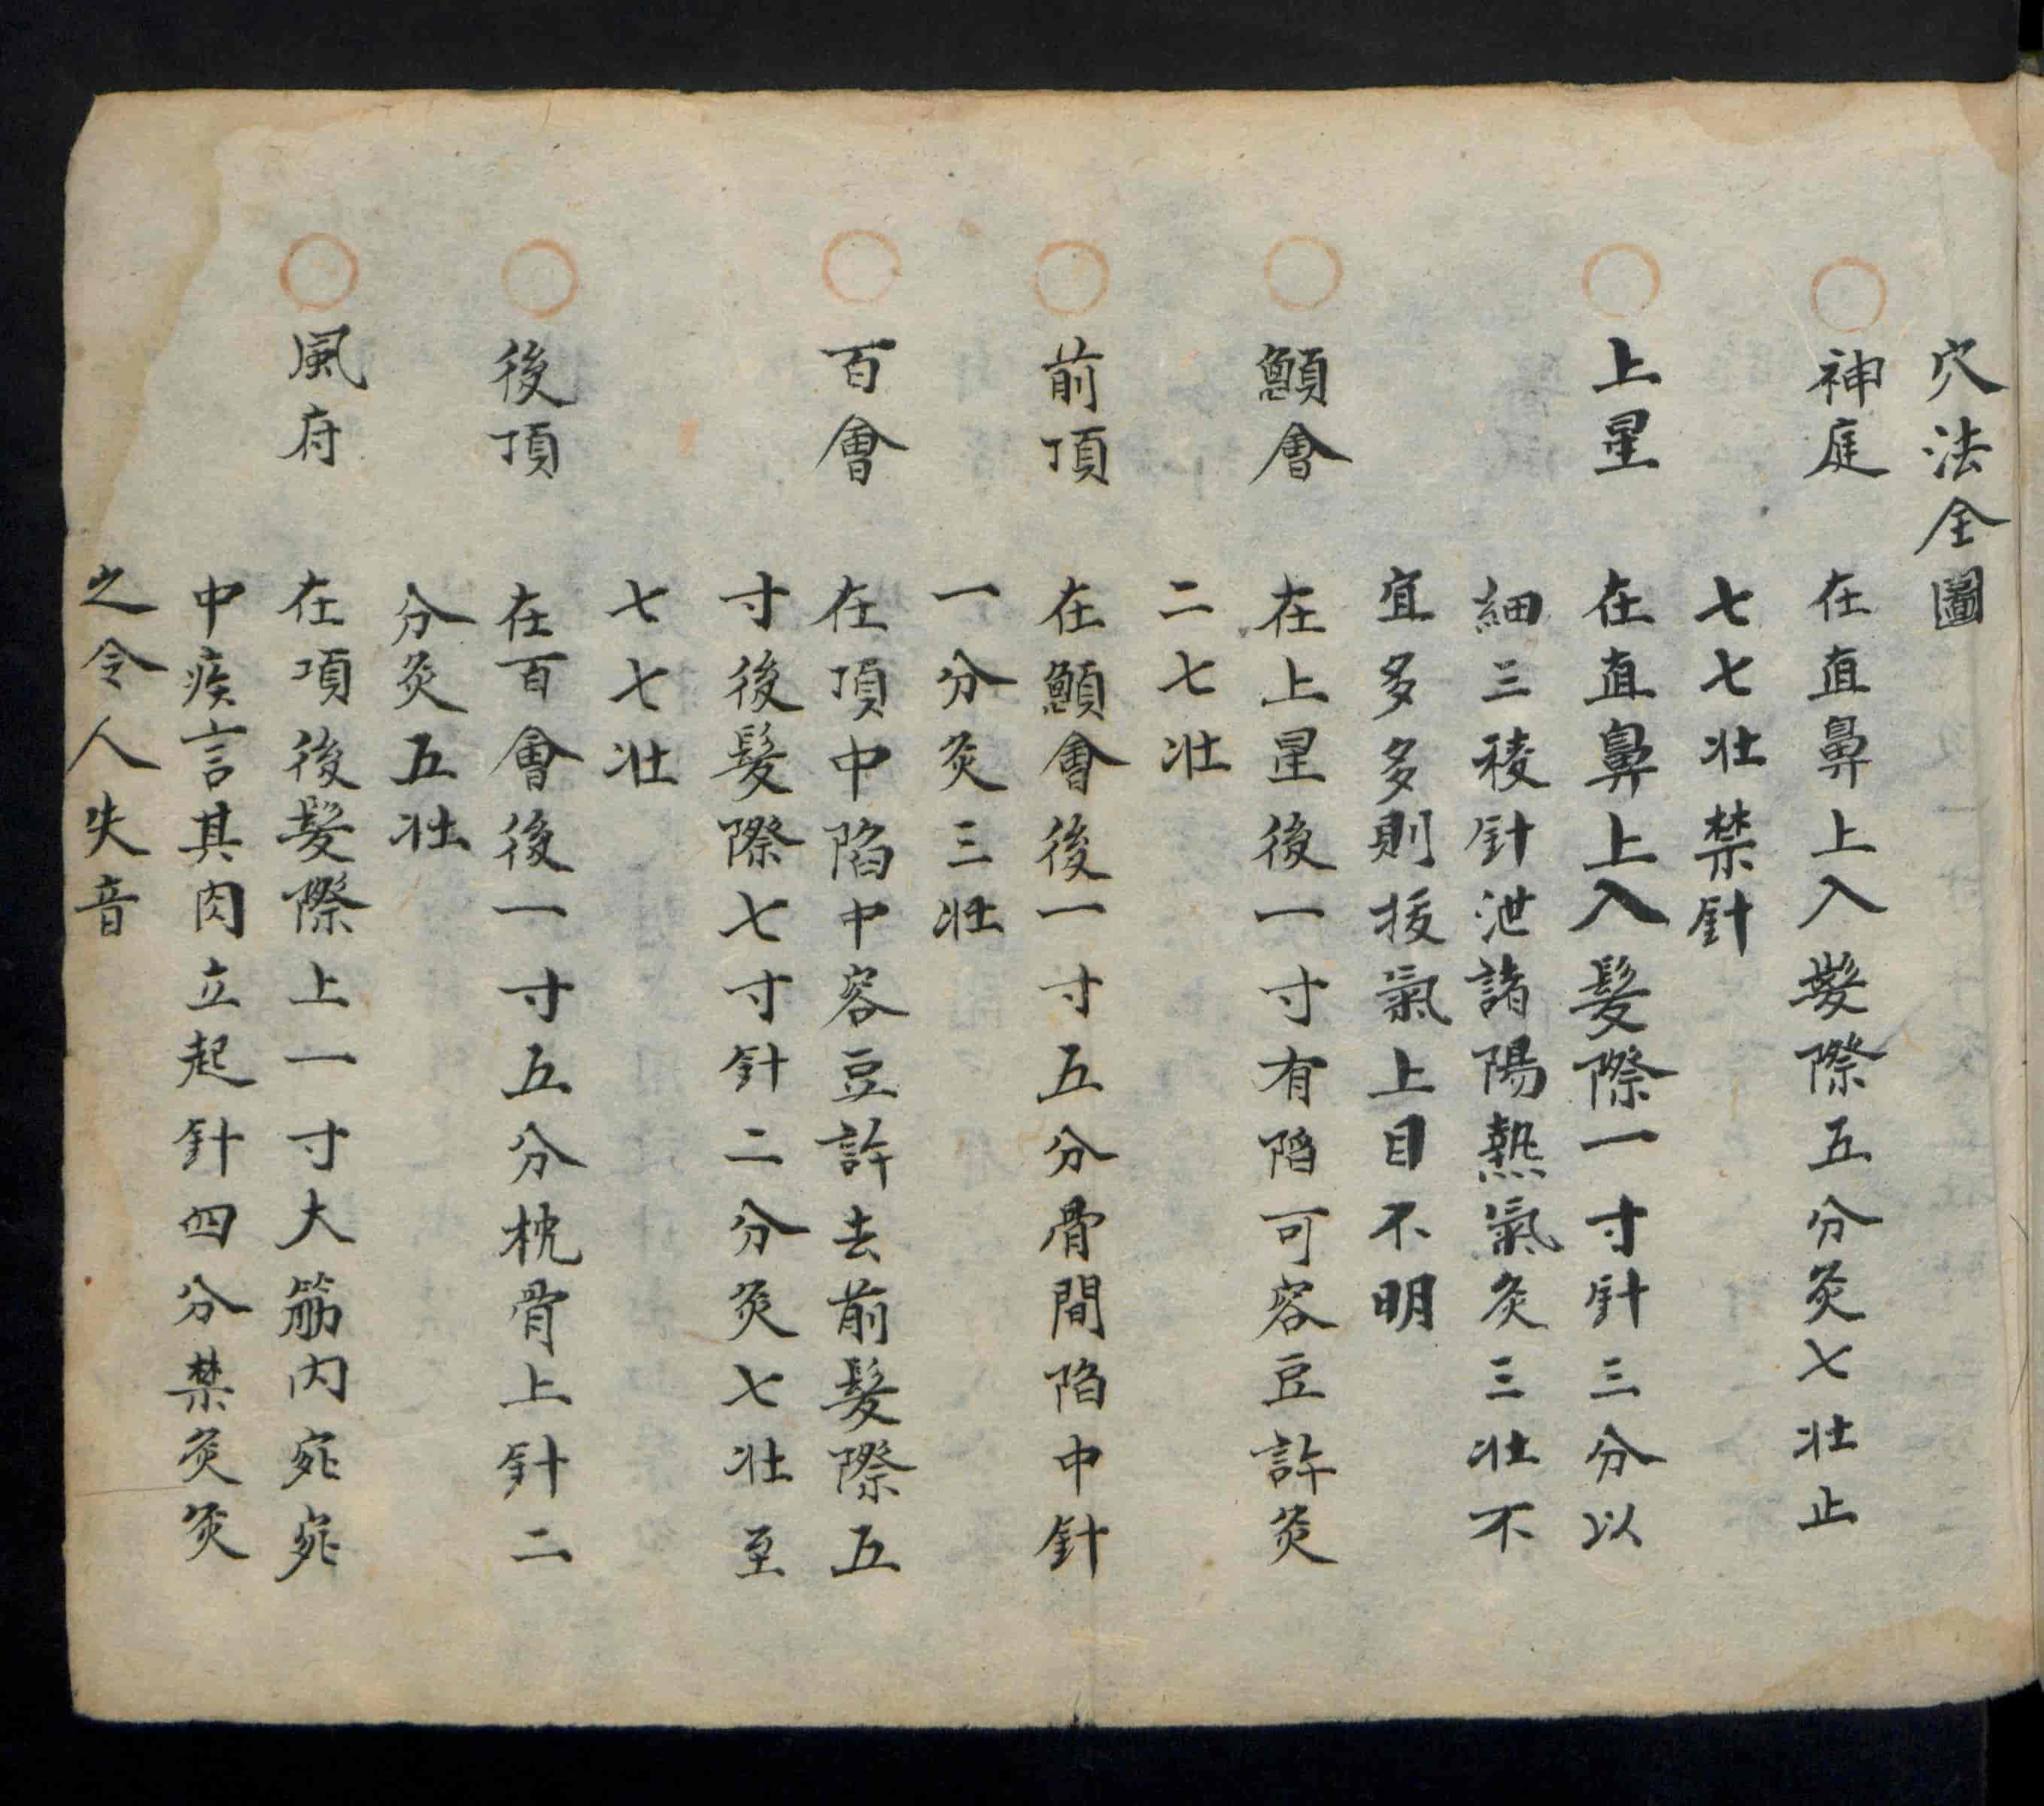 穴法全圖
神庭 在直鼻上入髮際五分灸七壯止
七七壯禁針
上星 在直鼻上入髮際一寸針三分以
細三稜針泄諸陽熱氣灸三壯不
宜多多則拔氣上目不明
顖會 在上星後一寸有陷可容豆許灸
二七壯
前頂 在顖會後一寸五分骨間陷中針
一分灸三壯
百會 在頂中陷中容豆許去前髮際五
寸後髮際七寸針二分灸七壯至
七七壯
後頂 在百會後一寸五分枕骨上針二
分灸五壯
風府 在項後髮際上一寸大筋內宛宛
中疾言其肉立起針四分禁灸灸
之令人失音